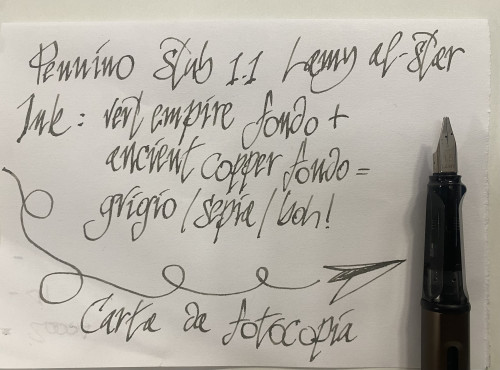 Pennino Stub 1.1 Lamy al-star
Ink: vert empire fondo +
ancient copper fondo =
grigio / sepia / boh!
Carta da fotocopia